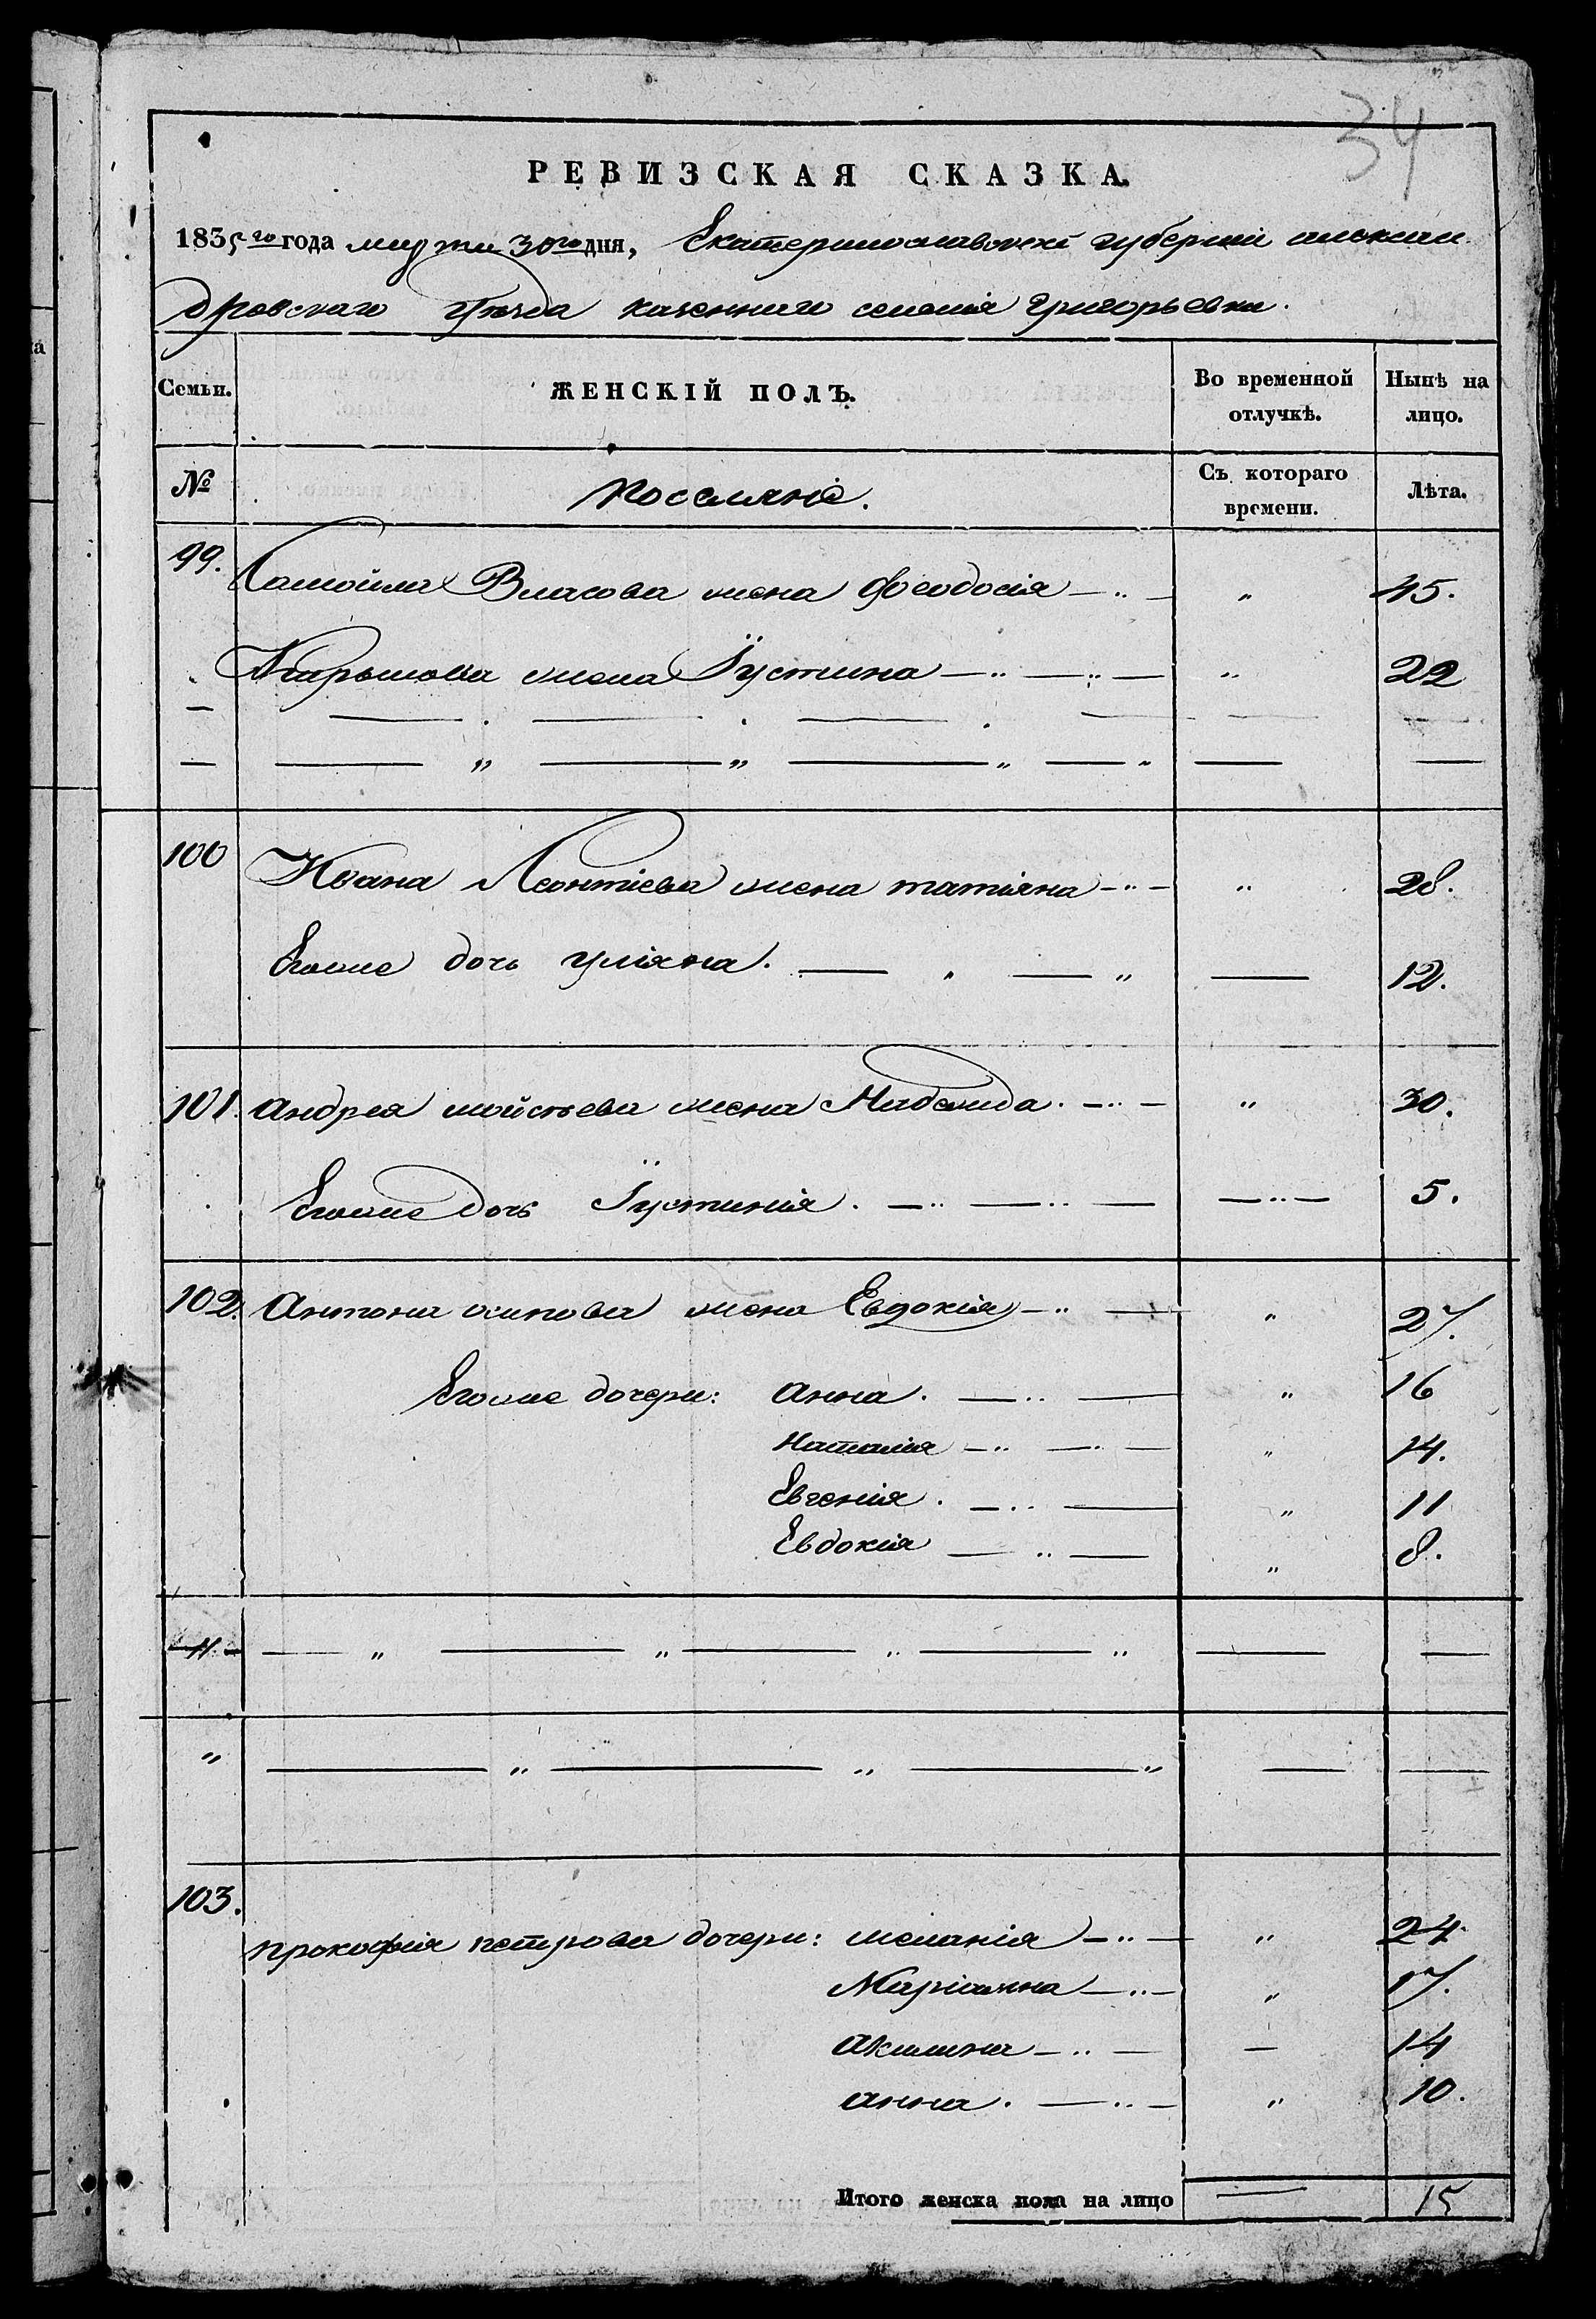 34
РЕВИЗСКАЯ СКАЗКА.
1835го года марта 30го дня, Екатеринославской губерніи алексан
дровскаго уѣзда казеннаго селенія Григорьевки.
Семьи. ЖЕНСКІЙ ПОЛЪ. Во временной отлучкѣ. Нынѣ на лицо.
№ поселяне. Съ котораго времени. Лѣта.
99. Самойла Власова жена Феодосія — " — " 45.
жена Іустина — " — " — " 22
100 Ивана Леонтіева жена татіяна — " — " 28.
Егоже дочь Уліяна. — " — " — 12.
101. андрея мойсѣева жена Надежда. — " — " 30.
Егоже дочь Іустинія. — " — " — — " — 5.
102. Антона осипова жена Евдокія — " — " 27.
Егоже дочери: анна. — " — " 16
Наталія — " — " — " 14.
Евгенія. — " — " 11
Евдокія — " — " 8.
103.
прокофія петрова дочери: меланія — " — " 24
Маріанна — " — " 17.
акилина — " — — 14
анна. — " — " 10.
Итого женска пола на лицо — 15